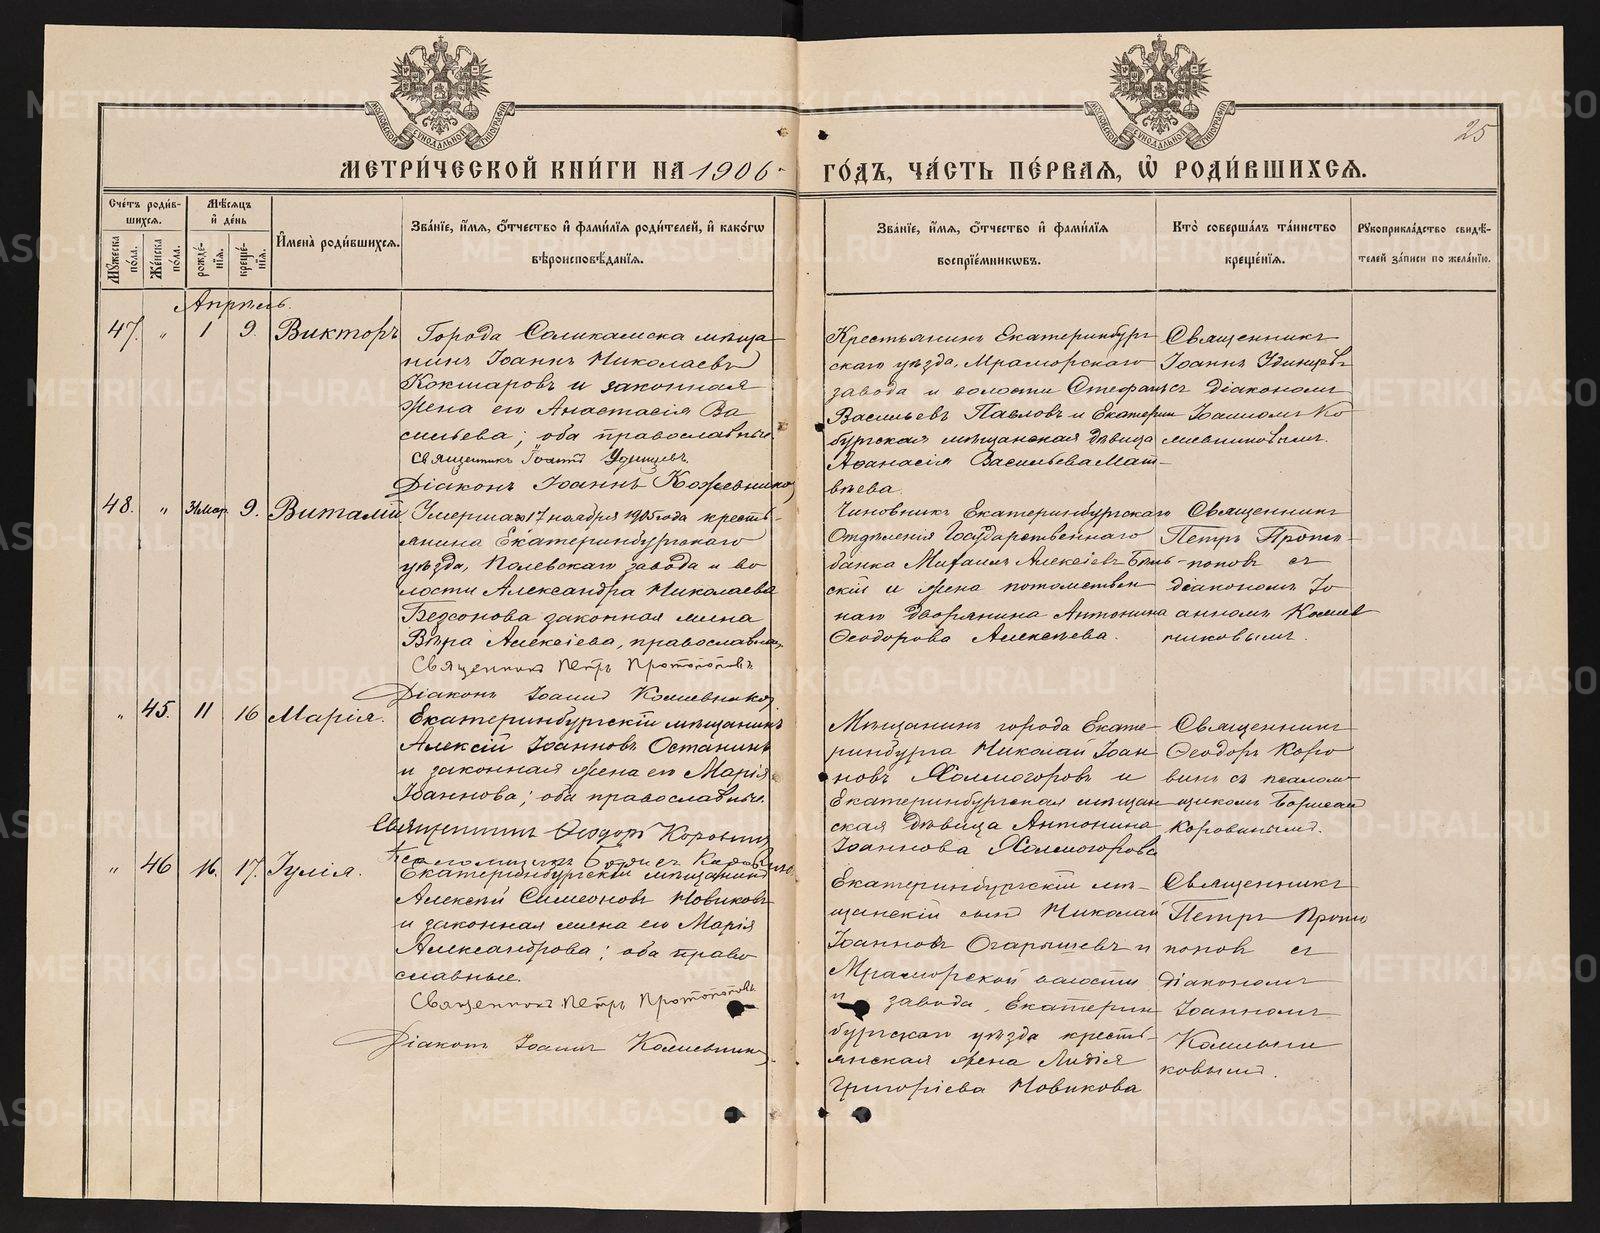 МЕТРИ́ЧЕСКОЙ КНИ́ГИ НА 1906
ГО́ДЪ, ЧА́СТЬ ПЕ́РВАЯ, Ѡ РОДИ́ВШИХСЯ.
25
Сче́тъ роди́вшихся.
Мѣ́сяцъ и де́нь
Му́жеска по́ла.
Же́нска по́ла.
рожде́нїя.
креще́нїя.
И҆мена̀ роди́вшихся.
Зва́нїе, и҆́мя, ѻ҆́тчество и҆ фами́лїя роди́телей, и҆ како́гѡ вѣроисповѣ́данїя.
Зва́нїе, и҆́мя, ѻ҆́тчество и҆ фами́лїя воспрїе́мникѡвъ.
Кто̀ соверша́лъ та́инство креще́нїя.
Рꙋкоприкла́дство свидѣ́телей за́писи по жела́нїю.
Апрѣль.
47. " 1 9. Викторъ
Города Соликамска мѣща
нинъ Іоаннъ Николаевъ
Кокшаровъ и законная
жена его Анастасія Ва
сильева; оба православные.
Священникъ Іоаннъ Удинцевъ.
Діаконъ Іоаннъ Кожевников
Крестьянинъ Екатеринбург
скаго уѣзда, Мраморскаго
завода и волости Стефанъ
Васильевъ Павловъ и Екатерин
бургская мѣщанская дѣвица
Аѳанасія Васильева Мат
вѣева.
Священникъ
Іоаннъ Удинцевъ
съ діакономъ
Іоанномъ Ко
жевниковымъ.
48. " 31 Мар. 9. Виталій
Умершаго 17 ноября 1905 года кресть-
янина Екатеринбургскаго
уѣзда, Полевскаго завода и во
лости Александра Николаева
Безсонова законная жена
Вѣра Алексіева, православная,
Священникъ Петръ Протопоповъ
Діаконъ Іоаннъ Кожевников
Чиновникъ Екатеринбургскаго
Отдѣленія Государственнаго
банка Михаилъ Алексіевъ Бѣль-
скій и жена потомствен
наго дворянина Антонина
Ѳеодорова Алексѣева.
Священникъ
Петръ Прото-
поповъ съ
діакономъ Іо
анномъ Кожев
никовымъ.
" 45. 11 16 Марія.
Екатеринбургскій мѣщанинъ
Алексій Іоанновъ Останинъ
и законная жена его Марія
Іоаннова; оба православные.
Священникъ Ѳеодоръ Коровинъ
Псаломщикъ Борисъ Коровинъ
Мѣщанинъ города Екате-
ринбурга Николай Іоан
новъ Холмогоровъ и
Екатеринбургская мѣщан
ская дѣвица Антонина
Іоаннова Холмогорова
Священникъ
Ѳеодоръ Коро
винъ съ псалом
щикомъ Борисом
Коровинымъ.
" 46 16. 17. Іулія.
Екатеринбургскій мѣщанинъ
Алексій Симеоновъ Новиковъ
и законная жена его Марія
Александрова; оба право
славные.
Священникъ Петръ Протопоповъ
Діаконъ Іоаннъ Кожевников
Екатеринбургскій мѣ-
щанскій сынъ Николай
Іоанновъ Огарышевъ и
Мраморской волости
и завода, Екатерин
бургскаго уѣзда кресть-
янская жена Лидія
Григоріева Новикова
Священникъ
Петръ Прото
поповъ съ
діакономъ
Іоанномъ
Кожевни
ковымъ.